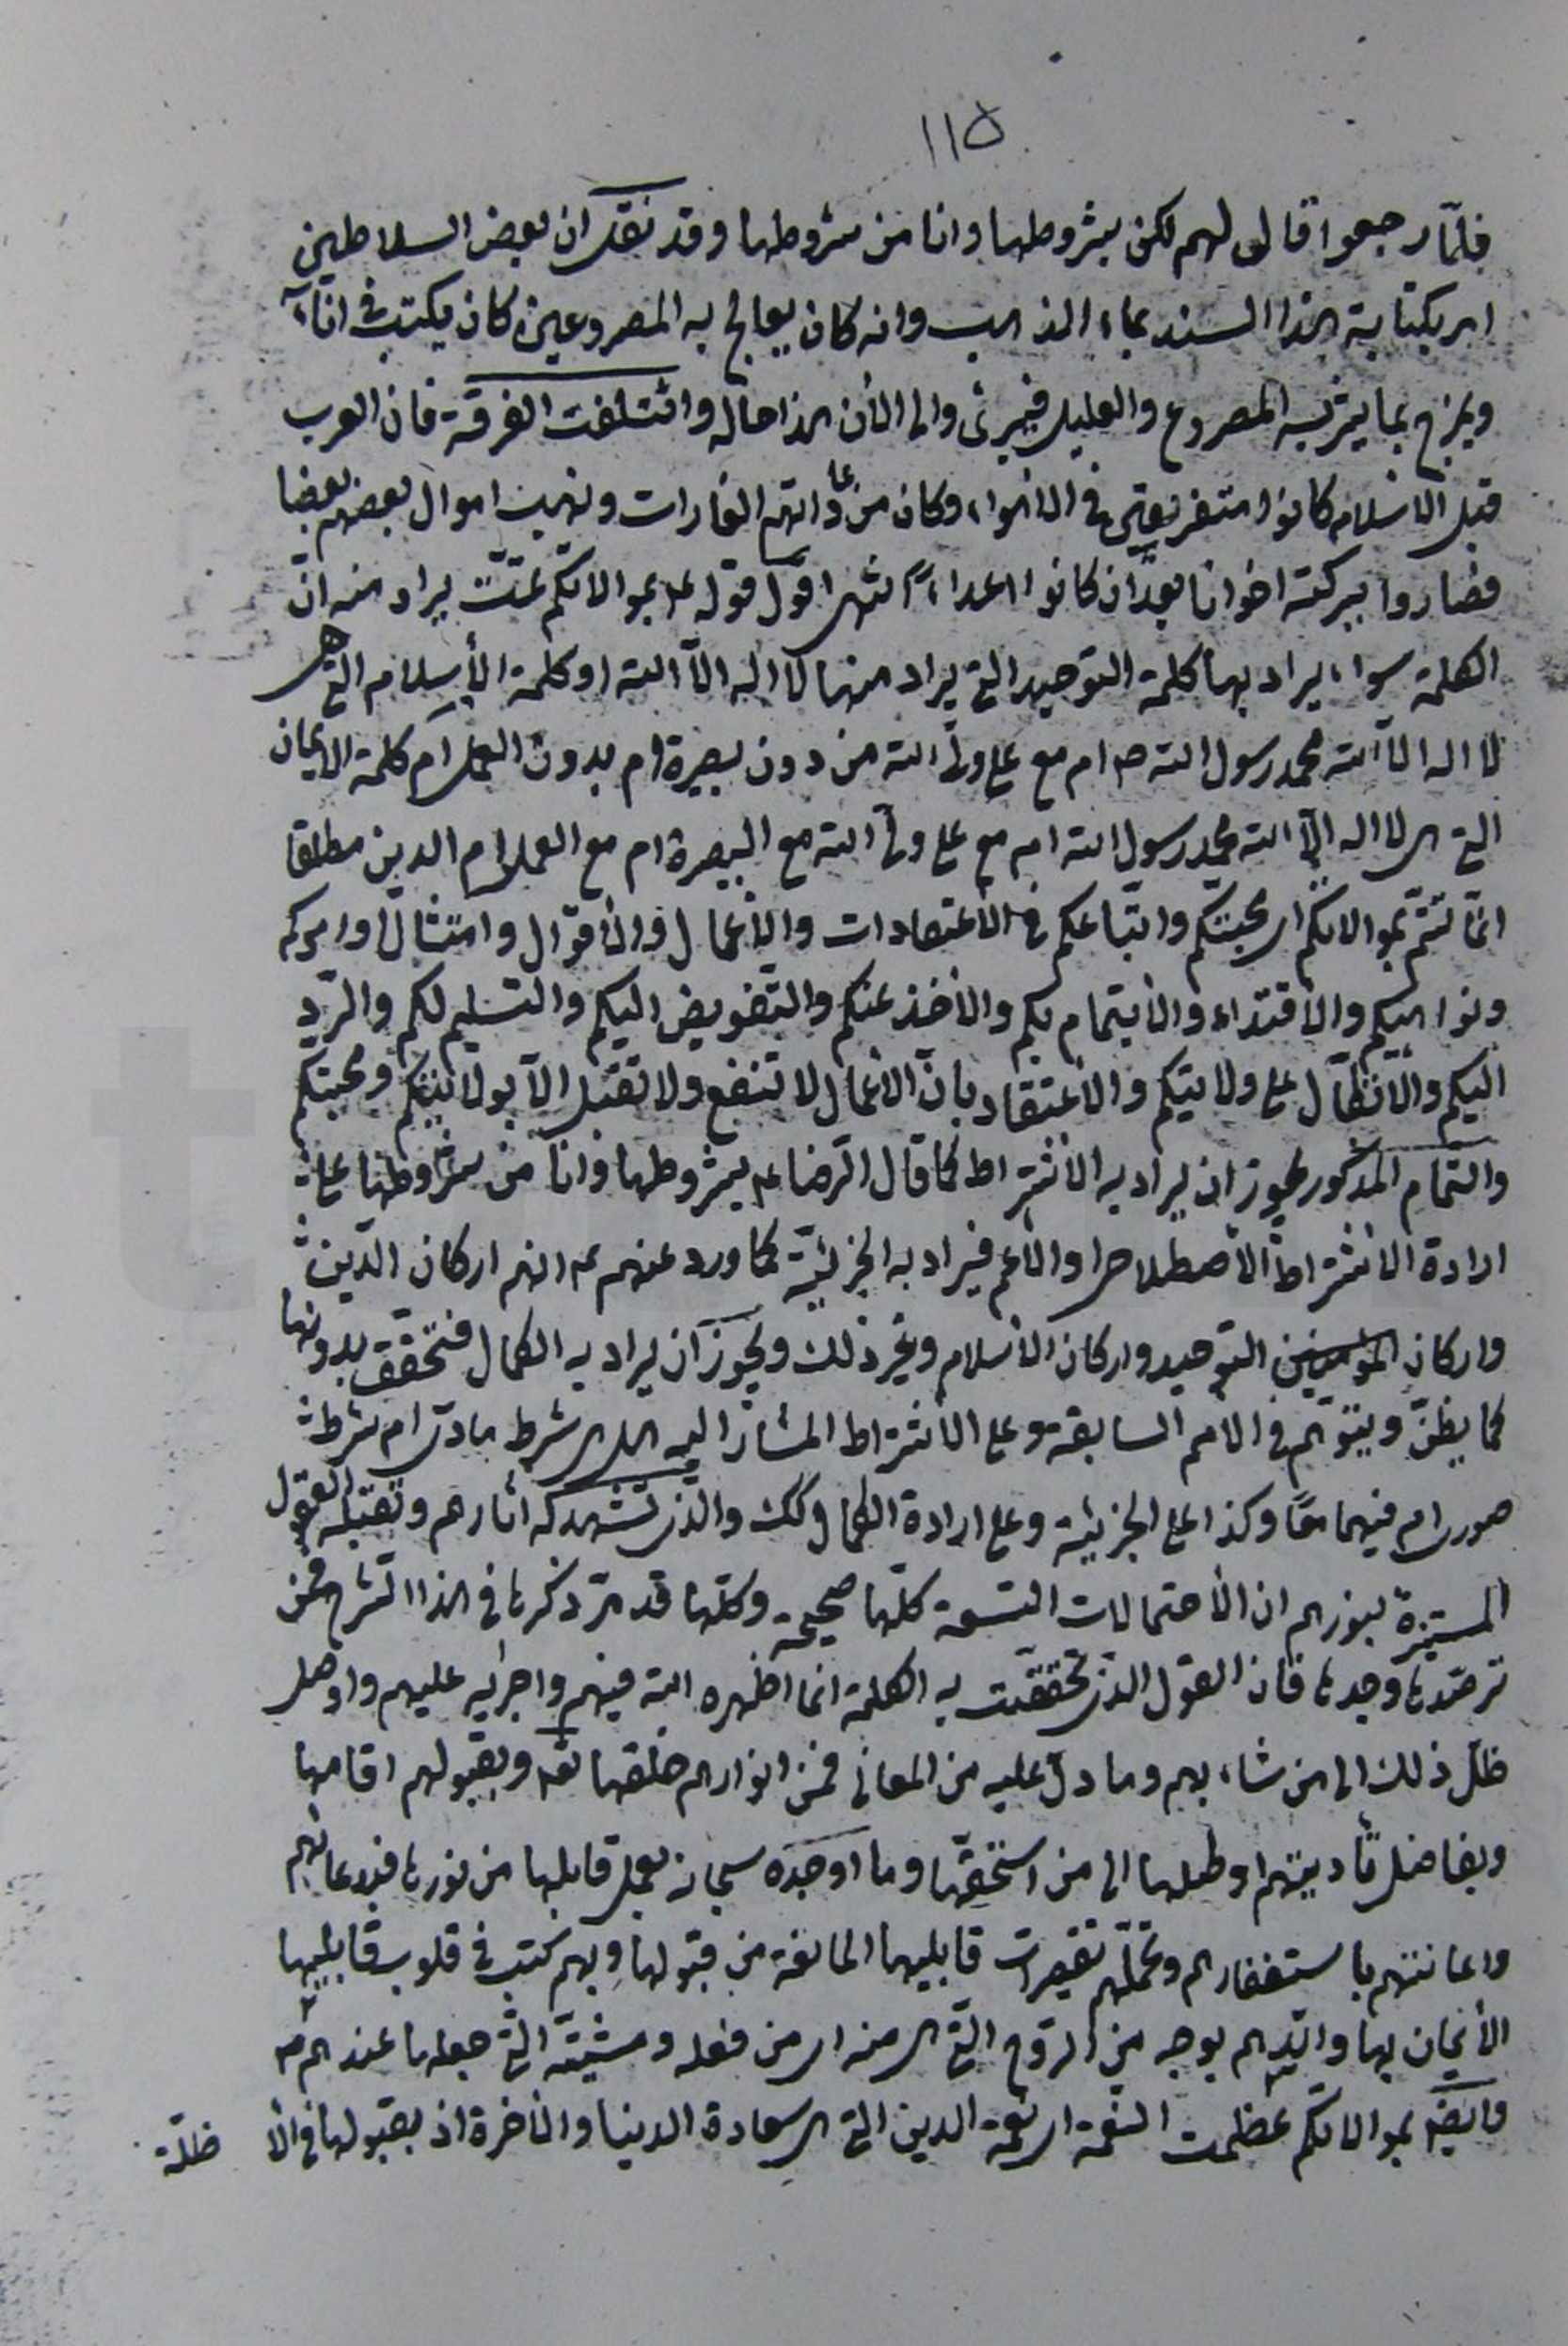 ١١٥
فلمّا رجعوا قال لهم لكن بشروطها وانا من شروطها وقد نقل ان بعض السلاطين
امر بكتابة هذا السند بماء الذهب وانه كان يعالج به المصروعين كان يكتب فى اناء
ويمزج بما يشربه المصروع والعليل فيبرئ والى الأن هذا حاله وائتلفت الفرقة فان العرب
قبل الاسلام كانوا متفرقين فى الاهواء وكان من عاداتهم الغارات ونهب اموال بعضهم بعضا
فصاروا ببركته اخوانا بعد ان كانوا اعداء انتهى اقول قوله ع بموالاتكم تمّت يراد منه انّ
الكلمة سواء يراد بها كلمة التوحيد التى يراد منها لا اله الّا الله او كلمة الأسلام التى هى
لا اله الّا الله محمد رسول الله ص ام مع على ولى الله من دون بصيرة ام بدون العمل ام كلمة الايمان
التى هى لا اله الّا الله محمد رسول الله ام مع على ولى الله مع البصيرة ام مع العمل ام الدين مطلقا
انّما تتم بموالاتكم اى محبتكم واتباعكم فى الأعتقادات والأعمال والأقوال وامتثال اوامركم
ونواهيكم والأقتداء والأيتمام بكم والأخذ عنكم والتفويض اليكم والتسليم لكم والردّ
اليكم والاتّكال على ولايتكم والاعتقاد بانّ الاعمال لا تنفع ولا تقبل الّا بولايتكم ومحبتكم
والتمام المذكور يجوز ان يراد به الاشتراط كما قال الرضا ع بشروطها وانا من شروطها على
ارادة الاشتراط الاصطلاحى او الأعم فيراد به الجزئيّة كما ورد عنهم ع انهم اركان الدّين
واركان التوحيد واركان الأسلام وغير ذلك ويجوز ان يراد به الكمال فتحقق بدونها
كما يظنّ ويتوهم فى الامم السابقة وعلى الاشتراط المشار اليه هل هى شرط مادّى ام شرط
صورى ام فيهما معًا وكذا على الجزئية وعلى ارادة الكمال كك والذى تشهد له اثارهم وتقبله العقول
المستنيرة بنورهم ان الأحتمالات التسعة كلّها صحيحة وكلّها قد مرّ ذكرها فى هذا الشرح فمن
ترصّدها وجدها فان القول الذى تحققت به الكلمة انما اظهره الله فيهم واجراه عليهم واوصل
ظلّ ذلك الى من شاء بهم وما دلّ عليه من المعانى فمن انوارهم خلقها الله وبقبولهم اقامها
وبفاضل تأديتهم اوصلها الى من استحقّها وما اوجده سبحانه بعمل قابلها من نورها فبدعائهم
واعانتهم باستغفارهم وتحمّلهم تقصيرات قابليها المانعة من قبولها وبهم كتب فى قلوب قابليها
الأيمان بها وايّدهم بوجه من الروح التى هى منه اى من فعله ومشيّته التى جعلها عندهم
وايضا بموالاتكم عظمت النعمة اى نعمة الدين التى هى سعادة الدنيا والأخرة اذ بقبولها فى الا